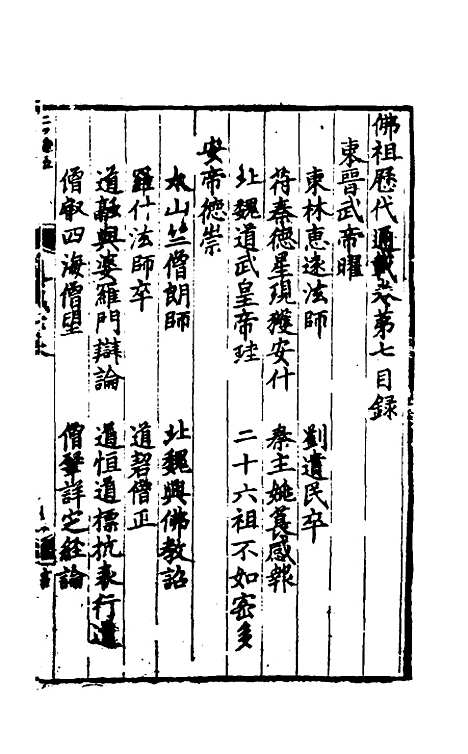 佛祖歷代通載卷第七目録
東晉武帝曜
東林惠遠法師 劉遺民卒
苻秦德星現獲安什 秦主姚萇感報
北魏道武皇帝珪 二十六祖不如密多
安帝德崇
太山竺僧朗師 北魏興佛教詔
羅什法師卒 道䂮僧正
道融與婆羅門辯論 道恒道標抗表行遁
僧叡四海僧望 僧肇詳定經論